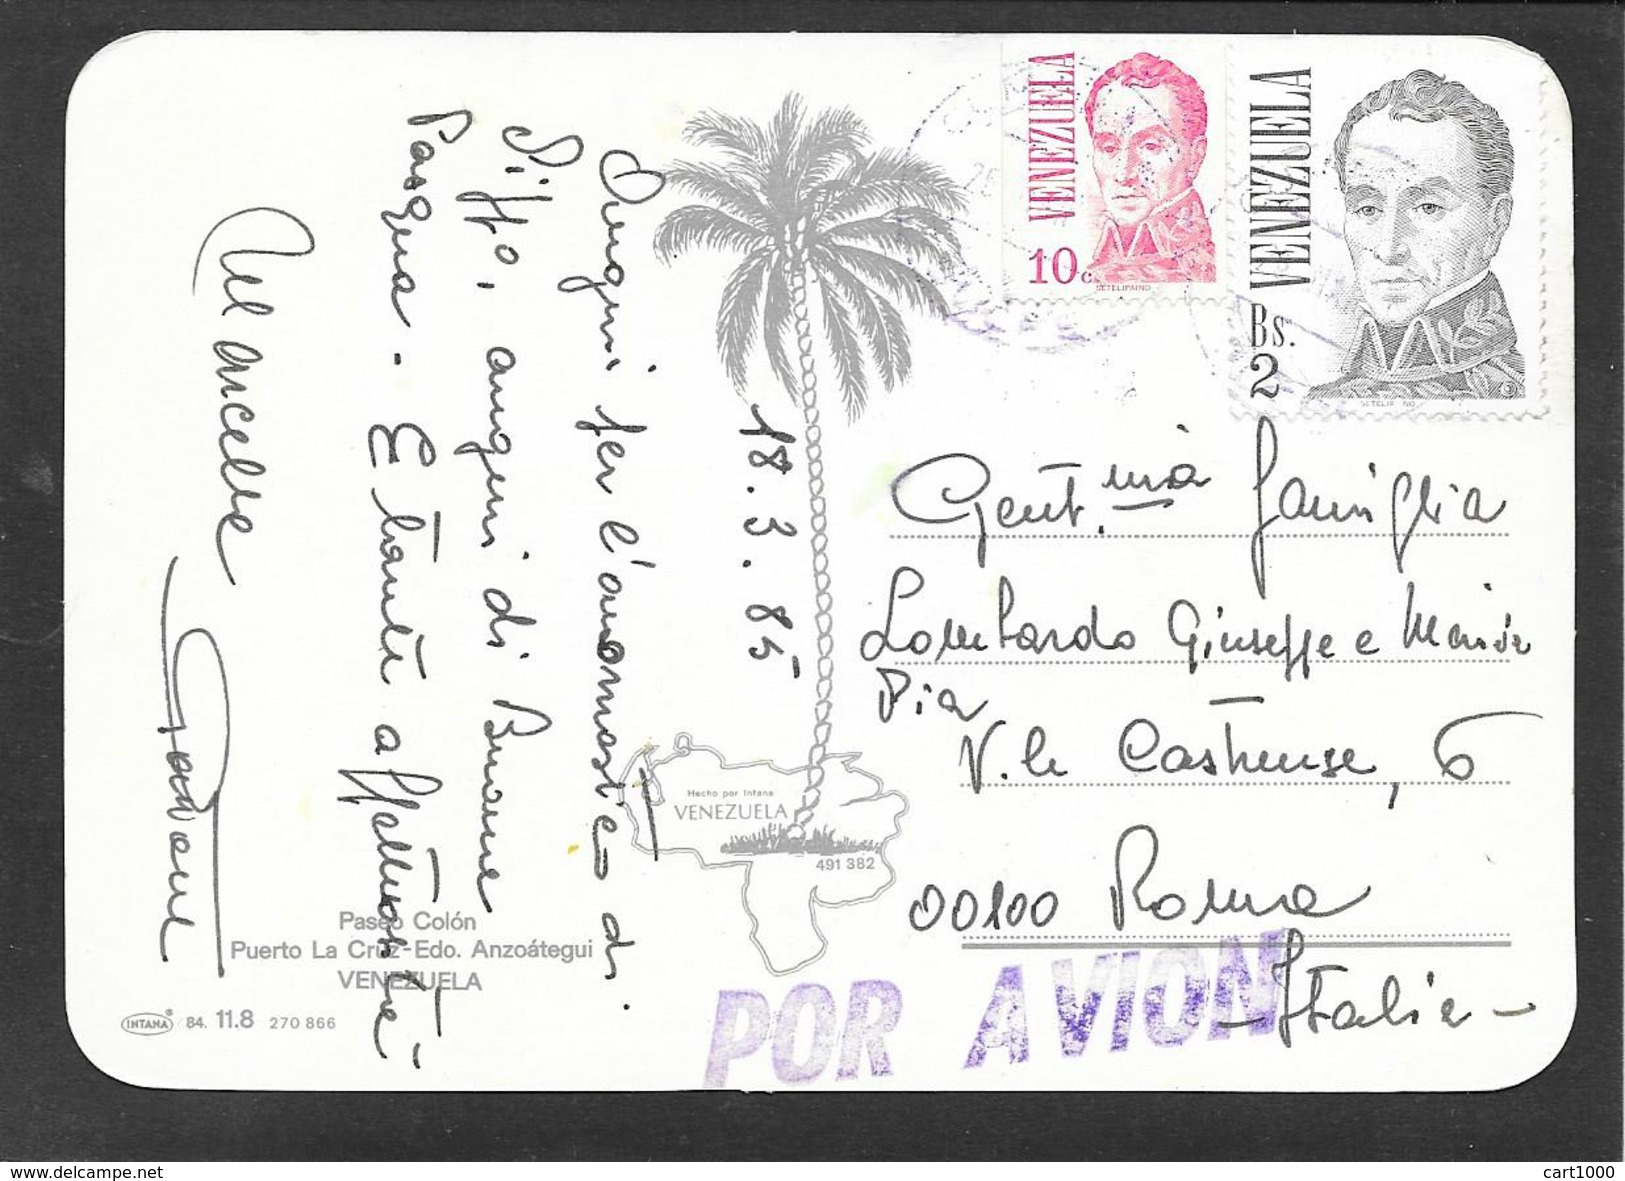 18.3.85
Auguri per l'onomastico di
Pippo, auguri di Buona
Pasqua. E tante affettuosità
VENEZUELA
10c
SETELIPAINO
VENEZUELA
Bs.
2
Gent.ma famiglia
Lombardo Giuseppe e Maria
Pia
V.le Castrense, 6
00100 Roma
-Italia-
POR AVION
Hecho por Intana
VENEZUELA
491 382
Paseo Colón
Puerto La Cruz-Edo. Anzoátegui
VENEZUELA
INTANA® 84. 11.8 270 866
cart1000
www.delcampe.net